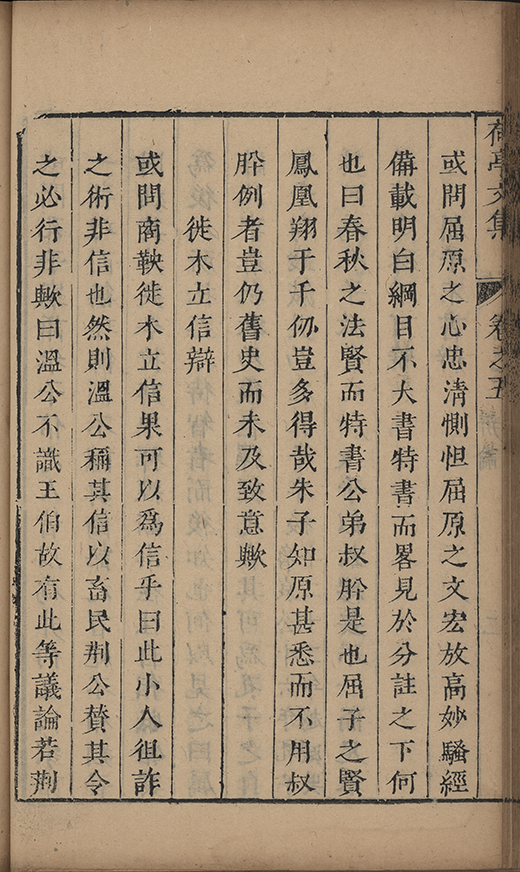 荷亭文集 卷之五
或問屈原之心忠清惻怛屈原之文宏放高妙騷經
備載明白綱目不大書特書而畧見於分註之下何
也曰春秋之法賢而特書公弟叔肸是也屈子之賢
鳳凰翔于千仞豈多得哉朱子如原甚悉而不用叔
肸例者豈仍舊史而未及致意歟
徙木立信辯
或問商鞅徙木立信果可以爲信乎曰此小人徂詐
之術非信也然則溫公稱其信以畜民荆公賛其令
之必行非歟曰溫公不識王伯故有此等議論若荆